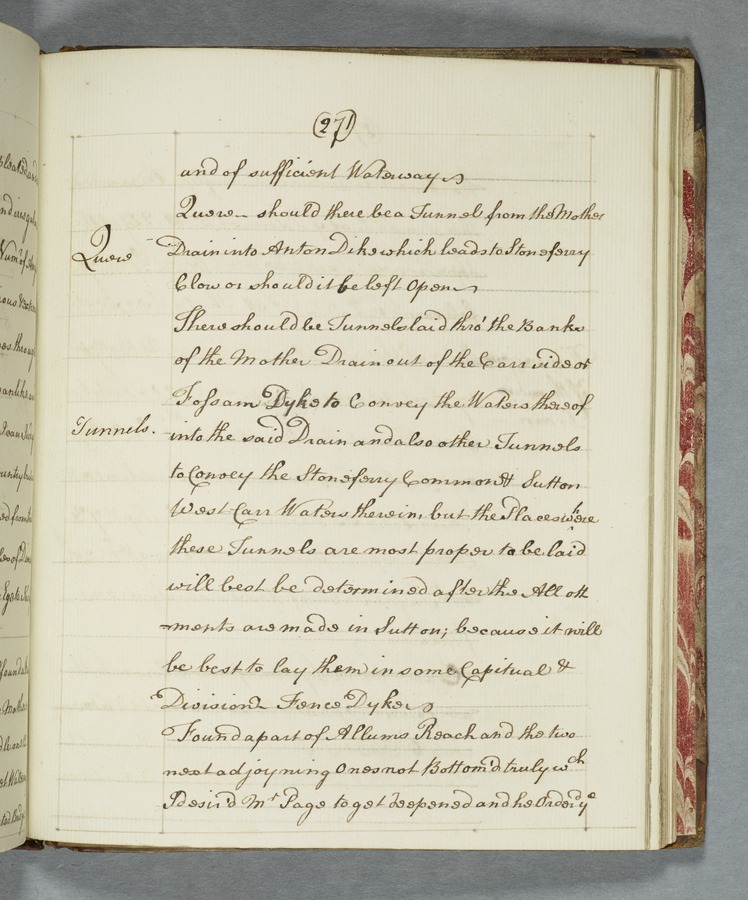 (27)
and of sufficient Waterways
Quere – should there be a Tunnel from the Mother
Quere
Drain into Anton Dike which leads to Stoneferry
Clow or should it be left Open
There should be Tunnels laid thro' the Banks
of the Mother Drain out of the Carr side or
Fossam Dyke to Convey the Waters thereof
Tunnels.
into the said Drain and also other Tunnels
to Convey the Stoneferry Common & Sutton
West Carr Waters therein but the Places where
these Tunnels are most proper to be laid
will best be determined after the Allott
ments are made in Sutton; because it will
be best to lay them in some Capitual &
Division Fence Dykes
Found a part of Allums Reach and the two
next adjoyning Ones not Bottom'd truly wch
I desir'd Mr Page to get deepened and he Order'd ye